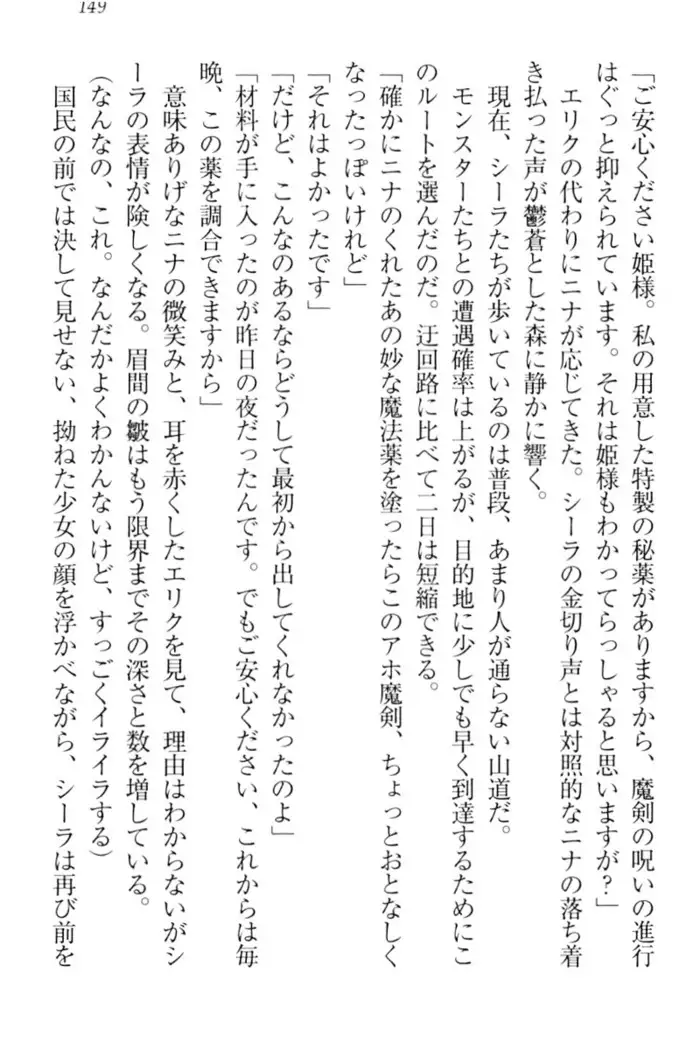 149
「ご安心ください姫様。私の用意した特製の秘薬がありますから、魔剣の呪いの進行
はぐっと抑えられています。それは姫様もわかってらっしゃると思いますが？」
エリクの代わりにニナが応じてきた。シーラの金切り声とは対照的なニナの落ち着
き払った声が鬱蒼とした森に静かに響く。
現在、シーラたちが歩いているのは普段、あまり人が通らない山道だ。
モンスターたちとの遭遇確率は上がるが、目的地に少しでも早く到達するためにこ
のルートを選んだのだ。迂回路に比べて二日は短縮できる。
「確かにニナのくれたあの妙な魔法薬を塗ったらこのアホ魔剣、ちょっとおとなしく
なったっぽいけれど」
「それはよかったです」
「だけど、こんなのあるならどうして最初から出してくれなかったのよ」
「材料が手に入ったのが昨日の夜だったんです。でもご安心ください、これからは毎
晩、この薬を調合できますから」
意味ありげなニナの微笑みと、耳を赤くしたエリクを見て、理由はわからないがシ
ーラの表情が険しくなる。眉間の皺はもう限界までその深さと数を増している。
（なんなの、これ。なんだかよくわかんないけど、すっごくイライラする）
国民の前では決して見せない、拗ねた少女の顔を浮かべながら、シーラは再び前を